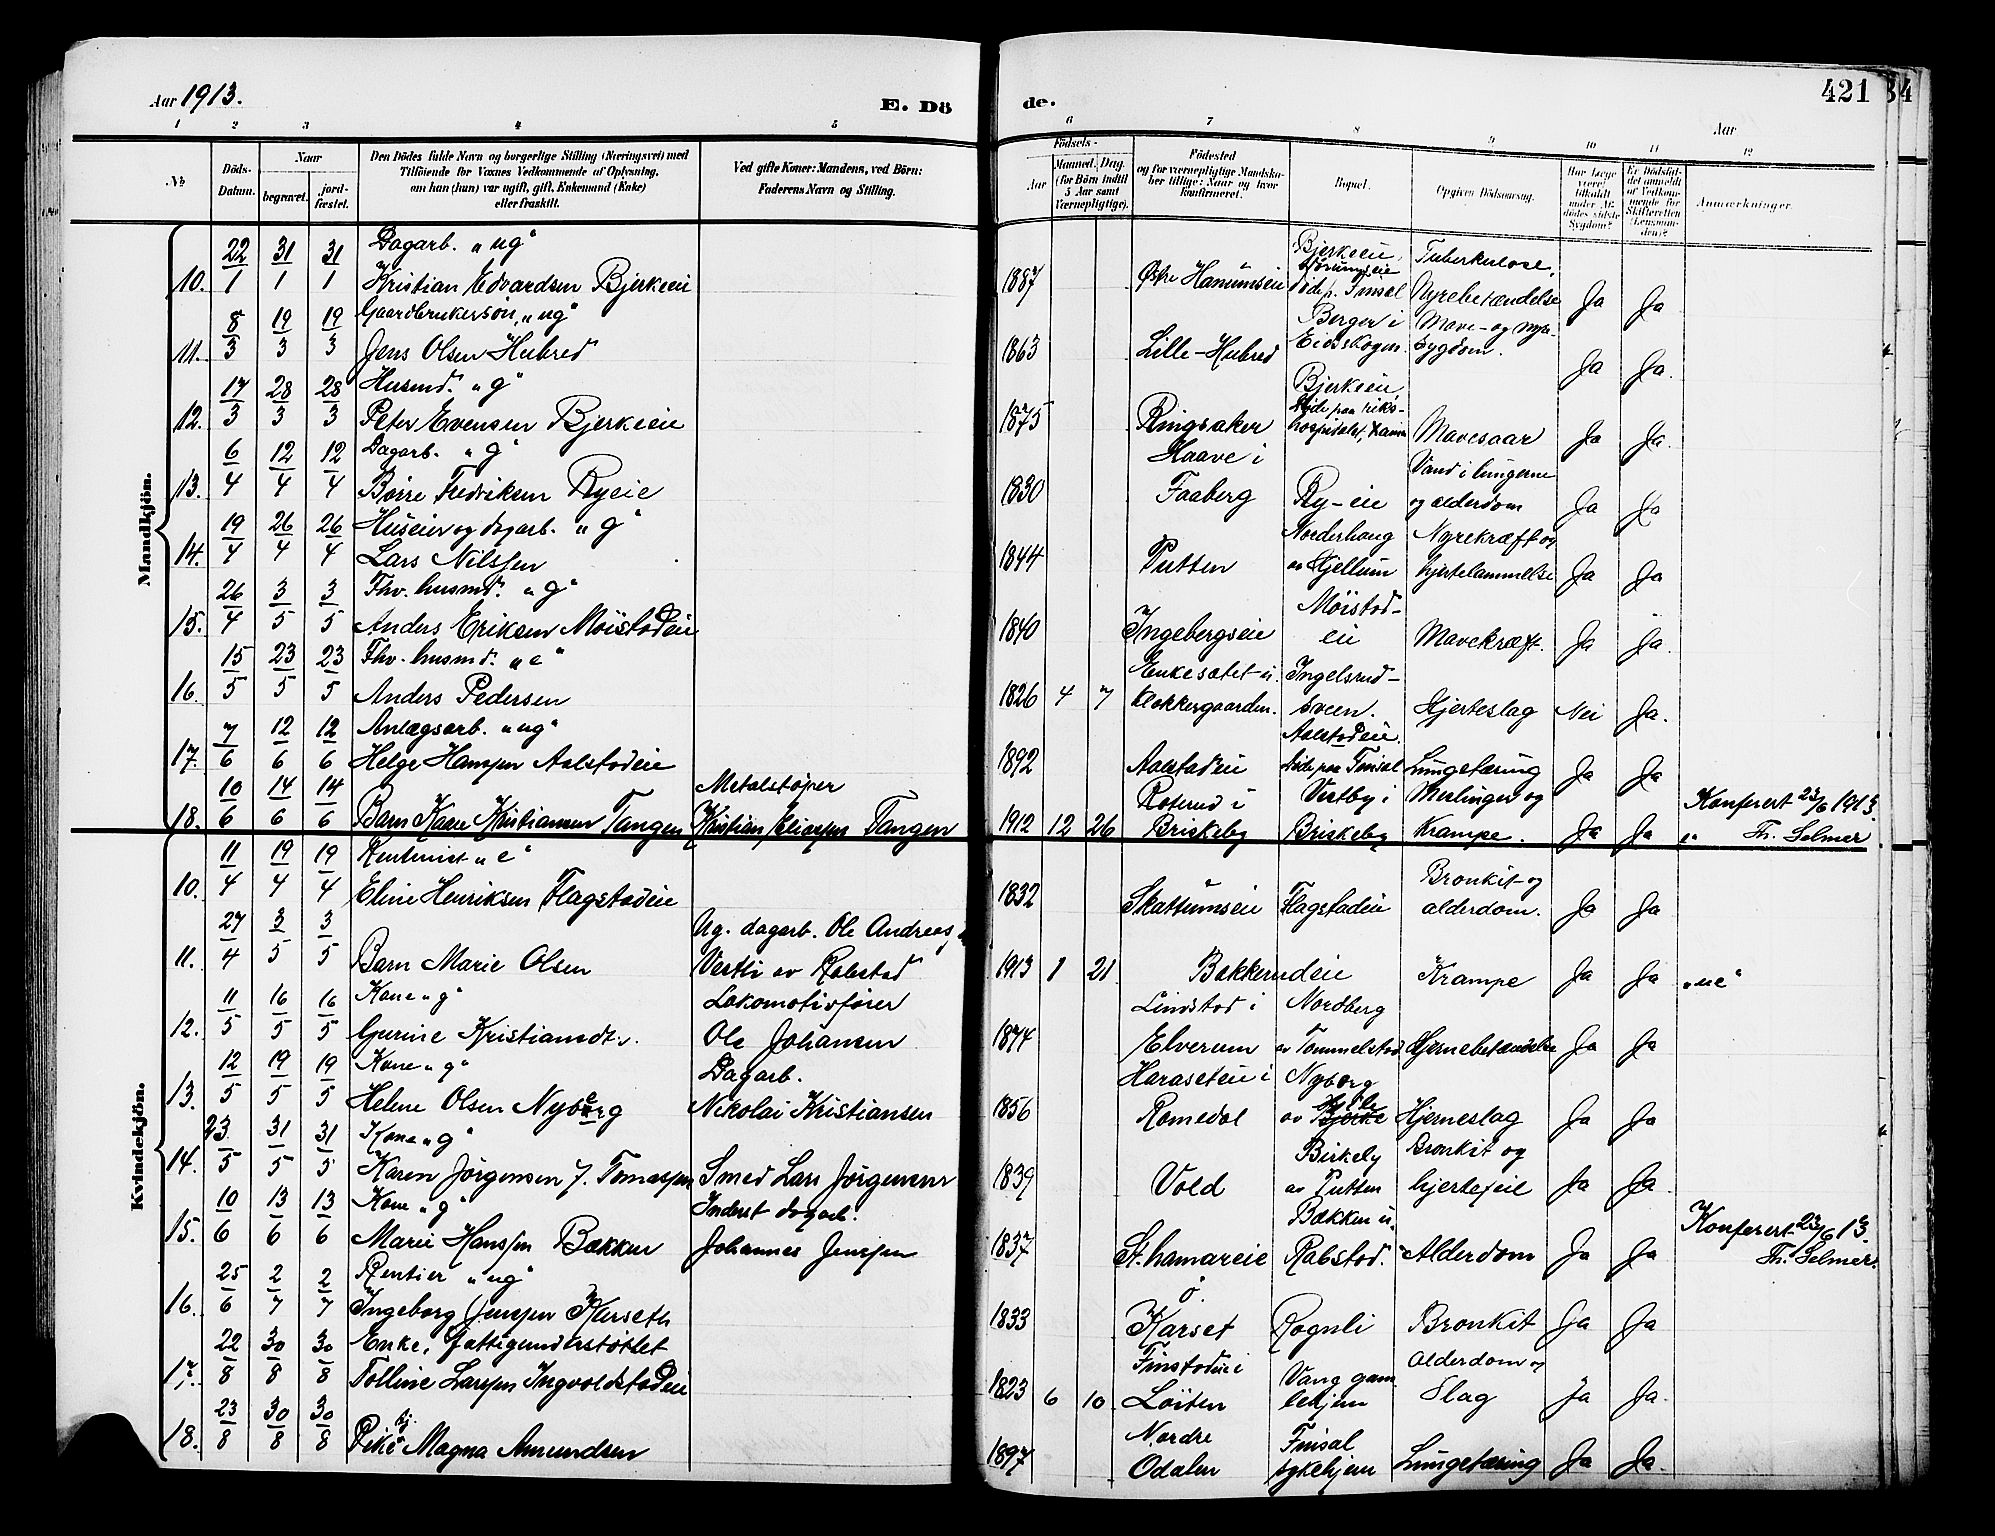 Aar 1913.
E. Dö
de.
421
34
Aar
1 2 3 4 5 6 7 8 9 10 11 12
No
Döds-Datum.
Naar
begravet.
jord-fæstet.
Den Dödes fulde Navn og borgerlige Stilling (Næringsvei) med
Tilföiende for Voxnes Vedkommende af Oplysning,
om han (hun) var ugift, gift, Enkemand (Enke)
eller fraskilt.
Ved gifte Koner: Mandens, ved Börn:
Faderens Navn og Stilling.
Födsels-
Aar
Maaned. Dag.
(for Börn indtil
5 Aar samt
Værnepligtige).
Födested
og for værnepligtige Mandska-
ber tillige: Naar og hvor
konfirmeret.
Bopæl.
Opgiven Dödsaarsag.
Har Læge
været
tilkaldt
under Af-
dödes sidste
Sygdom?
Er Dödsfal-
det anmeldt
af Vedkom-
mende for
Skifteretten
(Lensman-
den)?
Anmærkninger.
Mandkjön.
10. 22/1 31/1 31/1 Dagarb. "ug"
Kristian Edvardsen Bjerkeeie 1887 Østre Hanumseie Bjerkeeie, død p. Finsal Tuberkulose, Nyrebetændelse Ja Ja
11. 8/3 19/3 19/3 Gaardbrukersøn, "ug"
Jens Olsen Hubred 1863 Lille-Hubred Berger i Eidskogen. Mave- og nyre-sygdom. Ja Ja.
12. 17/3 28/3 28/3 Husmd. "g"
Peter Evensen Bjerkeeie 1875 Ringsaker Bjerkeeie, døde paa riks-hospitalet, Mavesaar Ja Ja.
13. 6/4 12/4 12/4 Dagarb. "g"
Børre Fredriksen Ryeie 1830 Haave i Faaberg Ry-eie Vand i lungerne og alderdom Ja Ja
14. 19/4 26/4 26/4 Huseier og dagarb. "g"
Lars Nilssen 1844 Putten Norderhaug av Hjellum Nyrekræft og hjertelammelse Ja Ja
15. 26/4 3/5 3/5 Fhv. husmd. "g"
Anders Eriksen Moistadeie 1840 Ingebergseie Möistad-eie Mavekræft. Ja Ja.
16. 15/5 23/5 23/5 Fhv. husmd. "e"
Anders Pedersen 1826 4 7 Enkesætet u. klokkergaarden. Ingelsrud-sveen. Hjerteslag Nei Ja.
17. 7/6 12/6 12/6 Anlægsarb. "ug"
Helge Hansen Aalstadeie 1892 Aalstadeie Aalstadeie. døde paa Finsal Lungetæring Ja Ja
18. 10/6 14/6 14/6 Barn Kaare Kristiansen Tangen Metalstøper
Kristian Eliassen Tangen 1912 12 26 Roterud i Briskeby Vestby i Briskeby Meslinger og Krampe. Ja Ja Konferert 23/6 1913.
Th. Selmer
Kvindekjön.
10. 11/4 19/4 19/4 Rentenist "e"
Eline Henriksen Flagstadeie 1832 Skattumseie Flagstadeie Bronkit og alderdom. Ja Ja
11. 27/4 3/5 3/5 Barn Marie Olsen Ug. dagarb. Ole Andreas
Vestli av Rabstad 1913 1 21 Bakkerudeie Krampe Ja Ja "ue"
12. 11/5 16/5 16/5 Kone "g"
Gurine Kristiansdt. Lokomotivfører
Ole Johansen 1874 Lindstad i Elverum Nordberg av Tommelstad Hjernebetændelse Ja Ja
13. 12/5 19/5 19/5 Kone "g"
Helene Olsen Nyborg Dagarb.
Nikolai Kristiansen 1856 Haraseteie i Romedal Nyborg av Hjerneslag Ja Ja
14. 23/5 31/5 31/5 Kone "g"
Karen Jörgensen f. Tomassen Smed Lars Jörgensen 1839 Vold Birkely av Putten Bronkit og hjertefeil Ja Ja.
15. 10/6 13/6 13/6 Kone "g"
Marie Hanssen Bækken Inderst dagarb.
Johannes Jenssen 1837 St. hamareie Bækken u. Rabstad. Alderdom Ja Ja Konferert 23/6 13.
Th. Selmer.
16. 25/6 2/7 2/7 Rentier "ug"
Ingeborg Jenssen Karseth 1833 Karset Rognli Bronkit Ja Ja
17. 22/8 30/8 30/8 Enke, fattigunderstøttet
Tolline Larssen Ingvoldstadeie 1823 6 10 Finstadeie i Löiten Vang gam-lehjem Alderdom og Slag Ja Ja.
18. 23/8 30/8 30/8 Pike Magna Amundsen 1897 Nordre Odalen Finsal sykehjem Lungetæring Ja Ja.